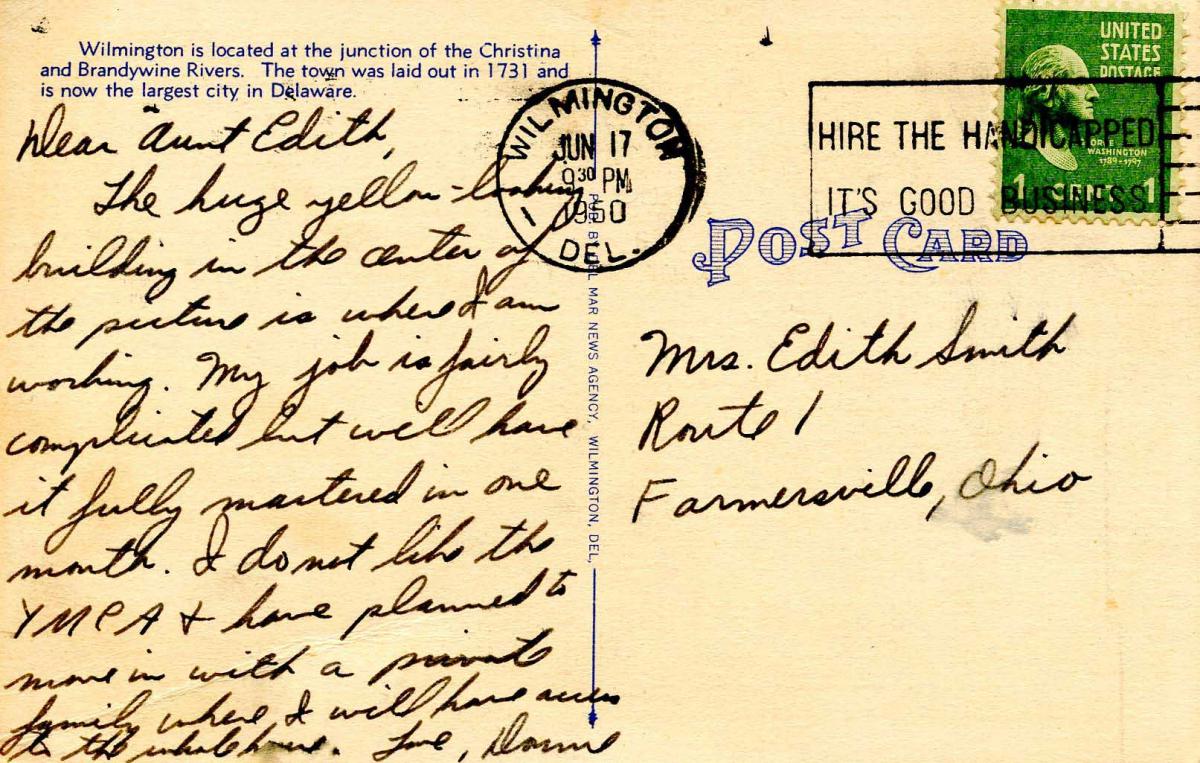 Wilmington is located at the junction of the Christina
and Brandywine Rivers. The town was laid out in 1731 and
is now the largest city in Delaware.
Dear Aunt Edith,
The huge yellow-looking
building in the center of
the picture is where I am
working. My job is fairly
complicated but will have
it fully mastered in one
month. I do not like the
YMCA & have planned to
move in with a private
family where I will have access
to the whole house. Love,
PUB. BY DEL MAR NEWS AGENCY, WILMINGTON, DEL.
WILMINGTON
JUN 17
9 30 PM
1950
DEL.
1
HIRE THE HANDICAPPED
IT'S GOOD BUSINESS
UNITED
STATES
POSTAGE
GEORGE
WASHINGTON
1789-1797
1 CENT 1
POST CARD
Mrs. Edith Smith
Route 1
Farmersville, Ohio